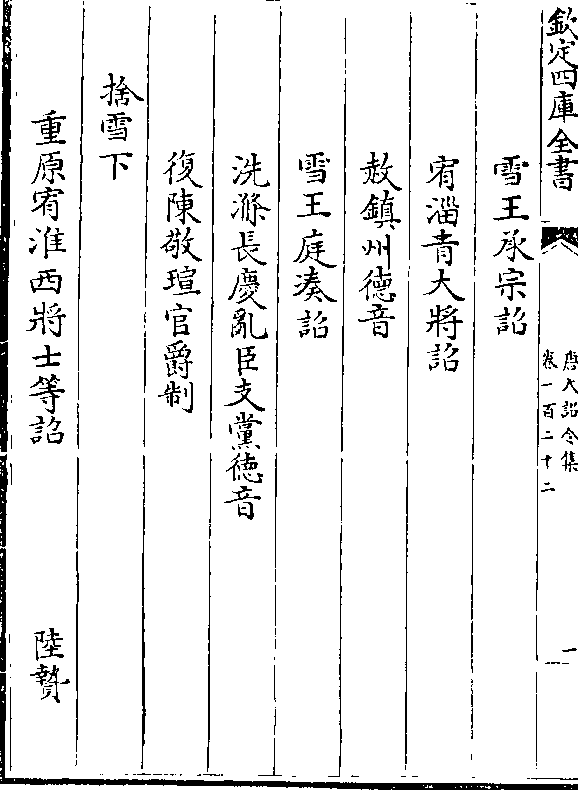 欽定四庫全書
唐大詔令集
卷一百二十二
一
雪王承宗詔
宥淄青大將詔
赦鎮州德音
雪王庭湊詔
洗滌長慶亂臣支黨德音
復陳敬瑄官爵制
捨雪下
重原宥淮西將士等詔 陸贄